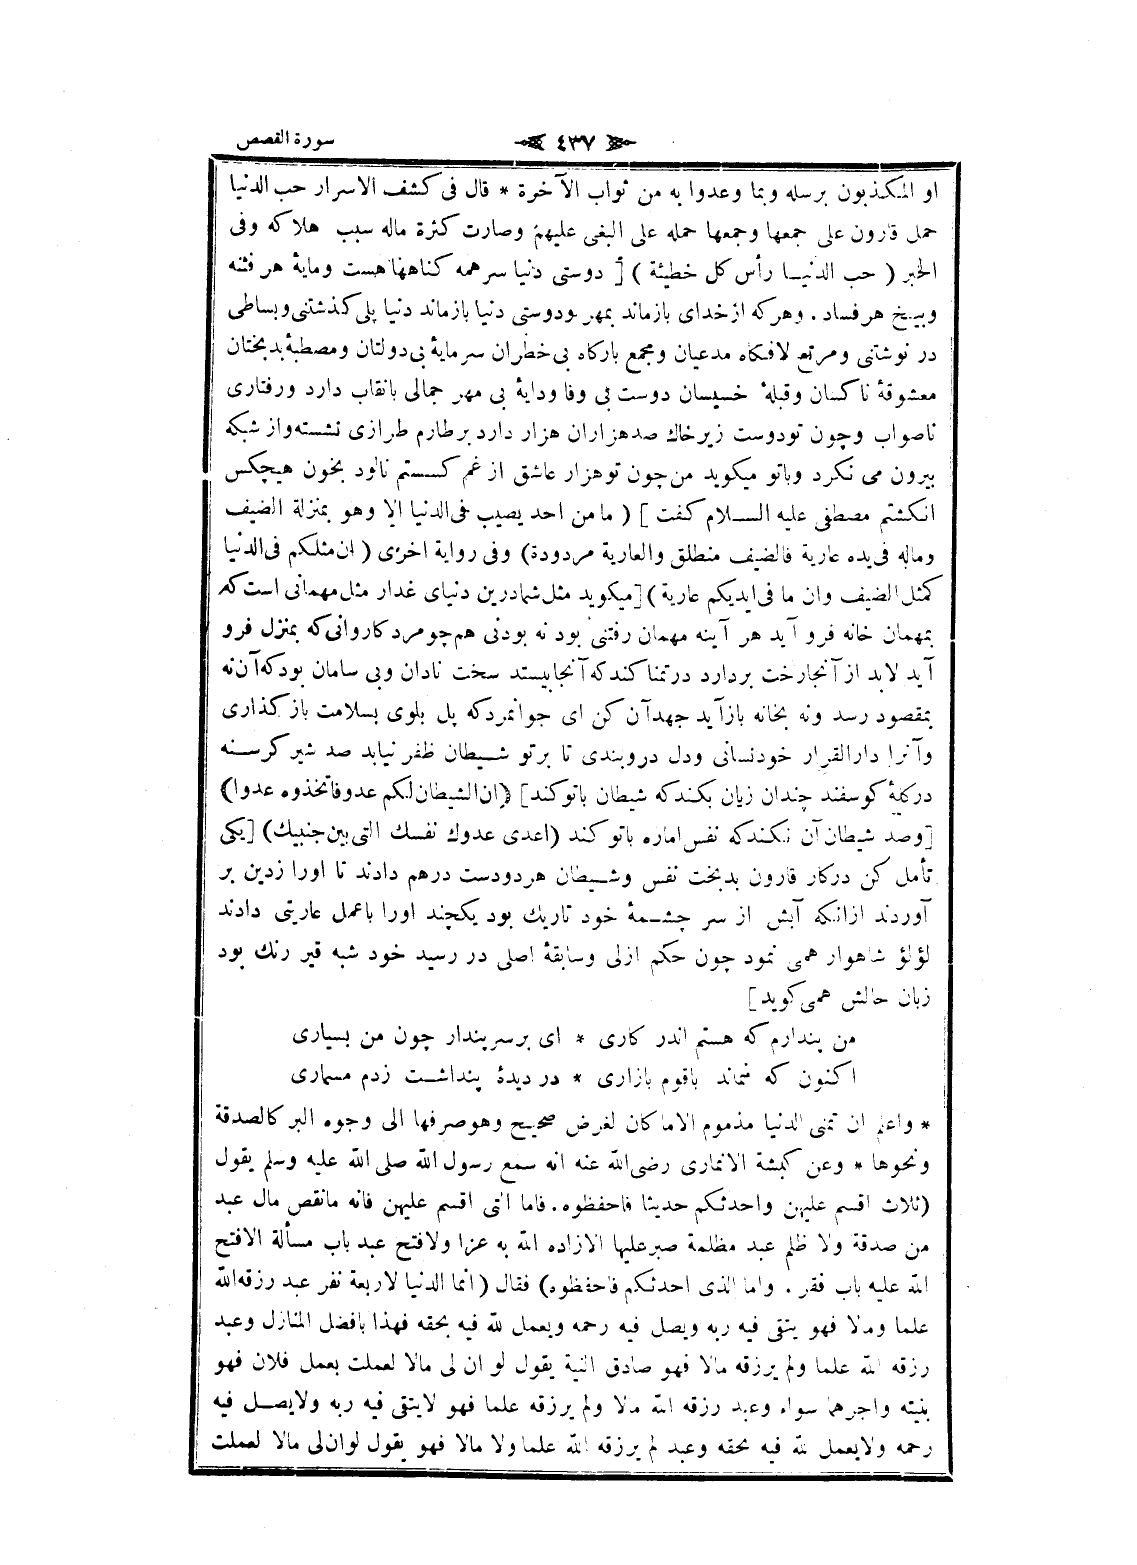 سورة القصص ٤٣٧
او المكذبون برسله وبما وعدوا به من ثواب الآخرة * قال فى كشف الاسرار حب الدنيا
حمل قارون على جمعها وجمعها حمله على البغى عليهم وصارت كثرة ماله سبب هلاكه وفى
الخبر ( حب الدنيا رأس كل خطيئة ) [ دوستى دنيا سر همه كناهها هست ومايۀ هر فتنه
وبيخ هر فساد . وهركه از خداى بازماند بمهر ودوستى دنيا بازماند دنيا پلى كذشتنى وبساطى
در نوشتنى ومرتع لافكاه مدعيان ومجمع باركاه بى خطران سرمايۀ بى دولتان ومصطبۀ بدبختان
معشوقۀ ناكسان وقبلۀ خسيسان دوست بى وفا ودايۀ بى مهر جمالى بانقاب دارد ورفتارى
ناصواب وچون تودوست زيرخاك صدهزاران هزار دارد برطارم طرازى نشسته واز شبكه
بيرون مى نكرد وباتو ميكويد من چون توهزار عاشق از غم كشتم نالود بخون هيچكس
انكشتم مصطفى عليه السلام كفت ] ( ما من احد يصيب فى الدنيا الا وهو بمنزلة الضيف
وماله فى يده عارية فالضيف منطلق والعارية مردودة) وفى رواية اخرى ( ان مثلكم فى الدنيا
كمثل الضيف وان ما فى ايديكم عارية ) [ ميكويد مثل شمادرين دنياى غدار مثل مهمانى است كه
بمهمان خانه فرو آيد هر آينه مهمان رفتنى بود نه بودنى هم چو مرد كاروانى كه بمنزل فرو
آيد لابد از آنجارخت بردارد در تمنا كند كه آنجا بيستد سخت نادان وبى سامان بود كه آن نه
بمقصود رسد ونه بخانه بازآيد جهدآن كن اى جوانمرد كه پل بلوى بسلامت باز كذارى
وآنرا دارالقرار خودنسانى ودل دروبندى تا برتو شيطان ظفر نيابد صد شير كرسنه
در كلۀ كوسفند چندان زيان نكند كه شيطان باتوكند] (ان الشيطان لكم عدو فاتخذوه عدوا)
[وصد شيطان آن نكندكه نفس اماره باتو كند (اعدى عدوك نفسك التى بين جنبيك) [يكى
تأمل كن دركار قارون بدبخت نفس وشيطان هردودست درهم دادند تا اورا زدين بر
آوردند ازانكه آبش از سر چشمۀ خود تاريك بود يكچند اورا باعمل عاريتى دادند
لؤلؤ شاهوار همى نمود چون حكم ازلى وسابقۀ اصلى در رسيد خود شبه قير رنك بود
زبان حالش همى كويد]
من پندارم كه هستم اندر كارى * اى برسر پندار چون من بسيارى
اكنون كه نماند باقوم بازارى * در ديدۀ پنداشت زدم مسمارى
* واعلم ان تمنى الدنيا مذموم الا ما كان لغرض صحيح وهو صرفها الى وجوه البر كالصدقة
ونحوها * وعن كبشة الانمارى رضى الله عنه انه سمع رسول الله صلى الله عليه وسلم يقول
(ثلاث اقسم عليهن واحدثكم حديثا فاحفظوه . فاما انى اقسم عليهن فانه مانقص مال عبد
من صدقة ولا ظلم عبد مظلمة صبر عليها الا زاده الله به عزا ولا فتح عبد باب مسألة الا فتح
الله عليه باب فقر . واما الذى احدثكم فاحفظوه) فقال ( انما الدنيا لاربعة نفر عبد رزقه الله
علما ومالا فهو يتقى فيه ربه ويصل فيه رحمه ويعمل لله فيه بحقه فهذا بافضل المنازل وعبد
رزقه الله علما ولم يرزقه مالا فهو صادق النية يقول لو ان لى مالا لعملت بعمل فلان فهو
بنيته واجرهما سواء وعبد رزقه الله مالا ولم يرزقه علما فهو لايتقى فيه ربه ولايصل فيه
رحمه ولايعمل لله فيه بحقه وعبد لم يرزقه الله علما ولا مالا فهو يقول لوان لى مالا لعملت